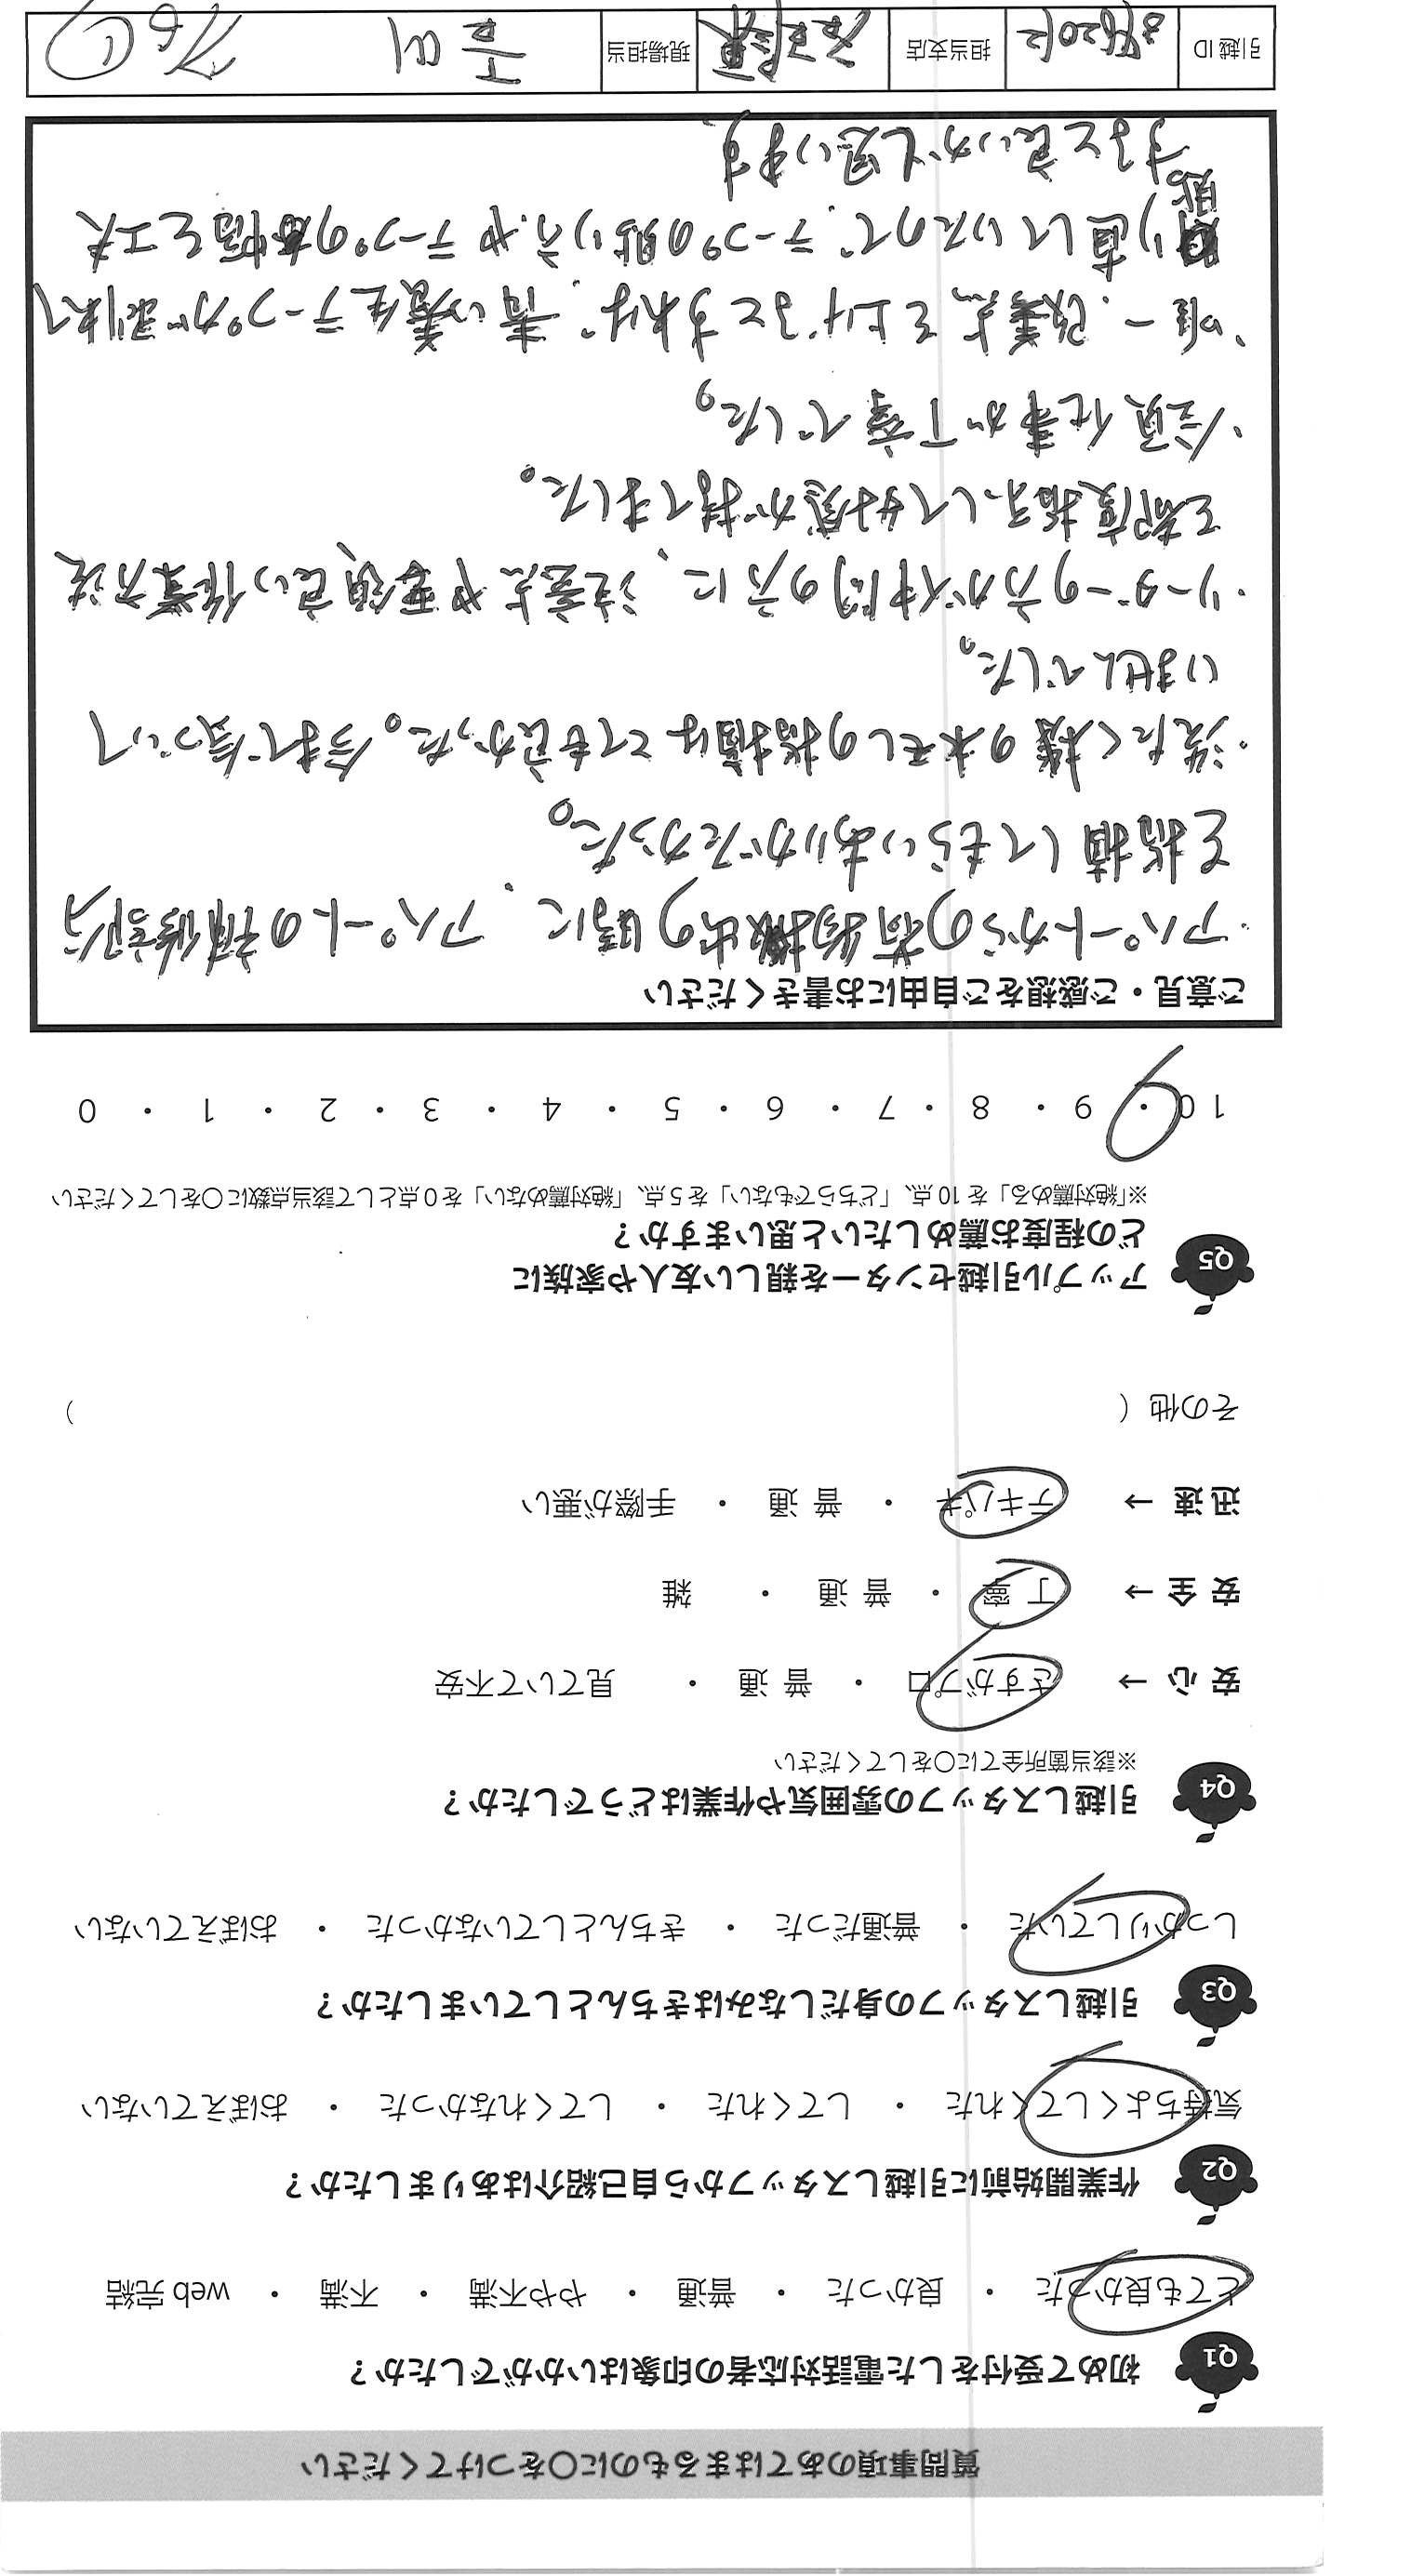 質問事項のあてはまるものに〇をつけてください
Q1 初めて受付をした電話対応者の印象はいかがでしたか？
とても良かった ・ 良かった ・ 普通 ・ やや不満 ・ 不満 ・ web 完結
Q2 作業開始前に引越しスタッフから自己紹介はありましたか？
気持ちよくしてくれた ・ してくれた ・ してくれなかった ・ おぼえていない
Q3 引越しスタッフの身だしなみはきちんとしていましたか？
しっかりしていた ・ 普通だった ・ きちんとしていなかった ・ おぼえていない
Q4 引越しスタッフの雰囲気や作業はどうでしたか？
※該当箇所全てに〇をしてください
安 心 → さすがプロ ・ 普 通 ・ 見ていて不安
安 全 → 丁 寧 ・ 普 通 ・ 雑
迅 速 → テキパキ ・ 普 通 ・ 手際が悪い
その他（ ）
Q5 アップル引越センターを親しい友人や家族に
どの程度お薦めしたいと思いますか？
※「絶対薦める」を 10 点、「どちらでもない」を 5 点、「絶対薦めない」を 0 点として該当点数に〇をしてください
10 ・ 9 ・ 8 ・ 7 ・ 6 ・ 5 ・ 4 ・ 3 ・ 2 ・ 1 ・ 0
ご意見・ご感想をご自由にお書きください
・アパートからの荷物搬出の時に、アパートの補修部分
を指摘してもらいありがたかった。
・洗たく機の水モレの指摘はとても良かった。今まで気づいて
いませんでした。
・リーダーの方が仲間の方に、注意点や要領良い作業方法
を都度指示して好感が持てました。
・全員仕事が丁寧でした。
・唯一、改善点を上げるとすれば、青い養生テープが剥れて
貼り直していたので、テープの貼り方やテープの種類を工夫
すると良いかと思います。
引越 ID 担当支店 現場担当